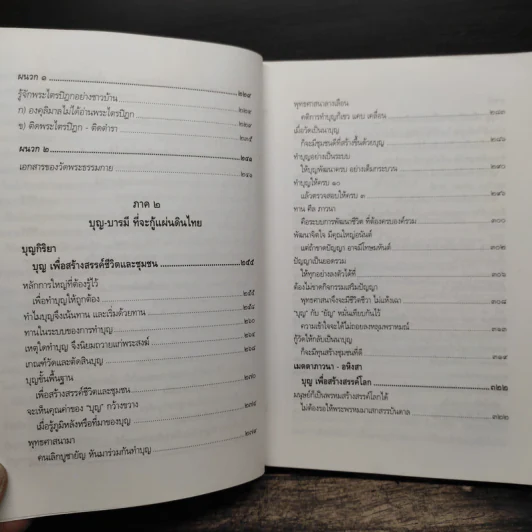 ผนวก ๑ ........ ๒๒๙
รู้จักพระไตรปิฎกอย่างชาวบ้าน
ก) องคุลิมาลไม่ได้อ่านพระไตรปิฎก ........ ๒๒๙
ข) ติดพระไตรปิฎก - ติดตำรา ........ ๒๓๕
ผนวก ๒ ........ ๒๔๑
เอกสารของวัดพระธรรมกาย ........ ๒๔๑
ภาค ๒
บุญ-บารมี ที่จะกู้แผ่นดินไทย
บุญกิริยา
บุญ เพื่อสร้างสรรค์ชีวิตและชุมชน ........ ๒๕๕
หลักการใหญ่ที่ต้องรู้ไว้
เพื่อทำบุญให้ถูกต้อง ........ ๒๕๕
ทำไมบุญจึงเน้นทาน และเริ่มด้วยทาน ........ ๒๕๘
ทานในระบบของการทำบุญ ........ ๒๖๔
เหตุใดทำบุญ จึงนิยมถวายแก่พระสงฆ์ ........ ๒๖๘
เกณฑ์วัดและตัดสินบุญ
บุญขั้นพื้นฐาน ........ ๒๗๐
เพื่อสร้างสรรค์ชีวิตและชุมชน
จะเห็นคุณค่าของ "บุญ" กว้างขวาง ........ ๒๗๕
เมื่อรู้ภูมิหลังหรือที่มาของบุญ
พุทธศาสนามา ........ ๒๗๙
คนเลิกบูชายัญ หันมาร่วมกันทำบุญ
พุทธศาสนาลางเลือน
คติการทำบุญก็เขว แคบ เคลื่อน ........ ๒๘๓
เมื่อวัดเป็นนาบุญ
ก็จะมีชุมชนดีที่สร้างขึ้นด้วยบุญ ........ ๒๘๖
ทำบุญอย่างเป็นระบบ
ให้บุญพัฒนาครบ อย่างเต็มกระบวน ........ ๒๙๒
ทำบุญให้ครบ ๑๐
แล้วตรวจสอบให้ครบ ๓ ........ ๒๙๖
ทาน ศีล ภาวนา
คือระบบการพัฒนาชีวิต ที่ต้องครบองค์รวม ........ ๓๐๐
พัฒนาจิตใจ มีคุณใหญ่อนันต์
แต่ถ้าขาดปัญญา อาจมีโทษมหันต์ ........ ๓๐๒
ปัญญาเป็นยอดรวม
ให้ทุกอย่างลงตัวได้ที่ ........ ๓๐๖
ต้องไม่ขาดกิจกรรมเสริมปัญญา
พุทธศาสนาจึงจะมีชีวิตชีวา ไม่แห้งเฉา ........ ๓๐๘
"บุญ" กับ "ยัญ" หมั่นเทียบกันไว้
ความเข้าใจจะได้ไม่ถอยลงหลุมพราหมณ์ ........ ๓๑๑
กู้วัดให้กลับเป็นนาบุญ
ก็จะมีทุนสร้างชุมชนที่ดี ........ ๓๑๙
เมตตาภาวนา - อหิงสา
บุญ เพื่อสร้างสรรค์โลก ........ ๓๒๒
มนุษย์ก็เป็นพรหมสร้างสรรค์โลกได้
ไม่ต้องรอให้พระพรหมมาเสกสรรบันดาล ........ ๓๒๒